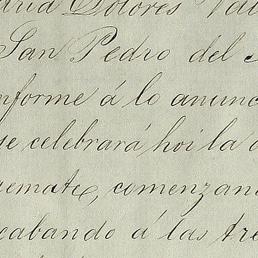 aria Dolores Val
San Pedro del
nforme á lo anunc
se celebrará hoi la
remate, comenzan
cabando á las tre